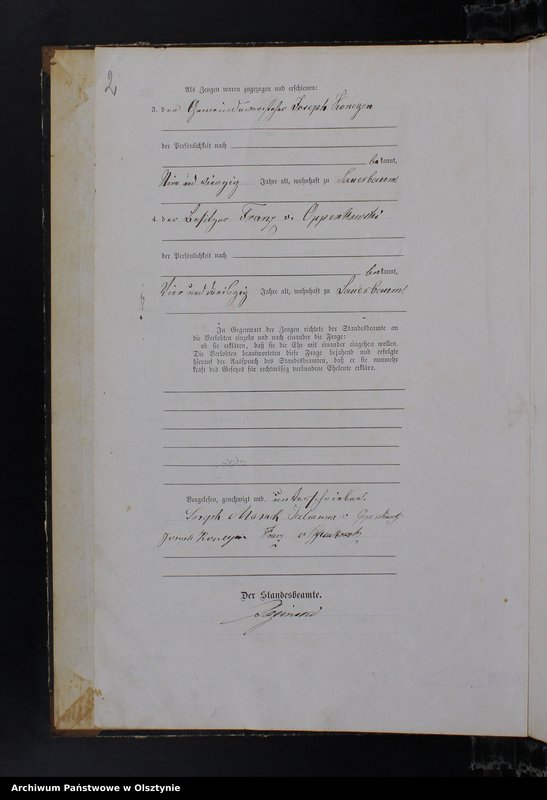 2
Als Zeugen waren zugezogen und erschienen:
3. der Gemeindevorsteher Joseph
der Persönlichkeit nach
bekannt,
Jahre alt, wohnhaft zu Sauerbaum
4. der Besitzer Franz v. Oppenkowski
der Persönlichkeit nach
bekannt,
Vier und dreißzig Jahre alt, wohnhaft zu Sauerbaum
In Gegenwart der Zeugen richtete der Standesbeamte an
die Verlobten einzeln und nach einander die Frage:
ob sie erklären, daß sie die Ehe mit einander eingehen wollen.
Die Verlobten beantworteten diese Frage bejahend und erfolgte
hierauf der Ausspruch des Standesbeamten, daß er sie nunmehr
kraft des Gesetzes für rechtmäßig verbundene Eheleute erkläre.
Vorgelesen, genehmigt und unterschrieben.
Joseph v.
Joseph Franz v.
Der Standesbeamte.
Archiwum Państwowe w Olsztynie